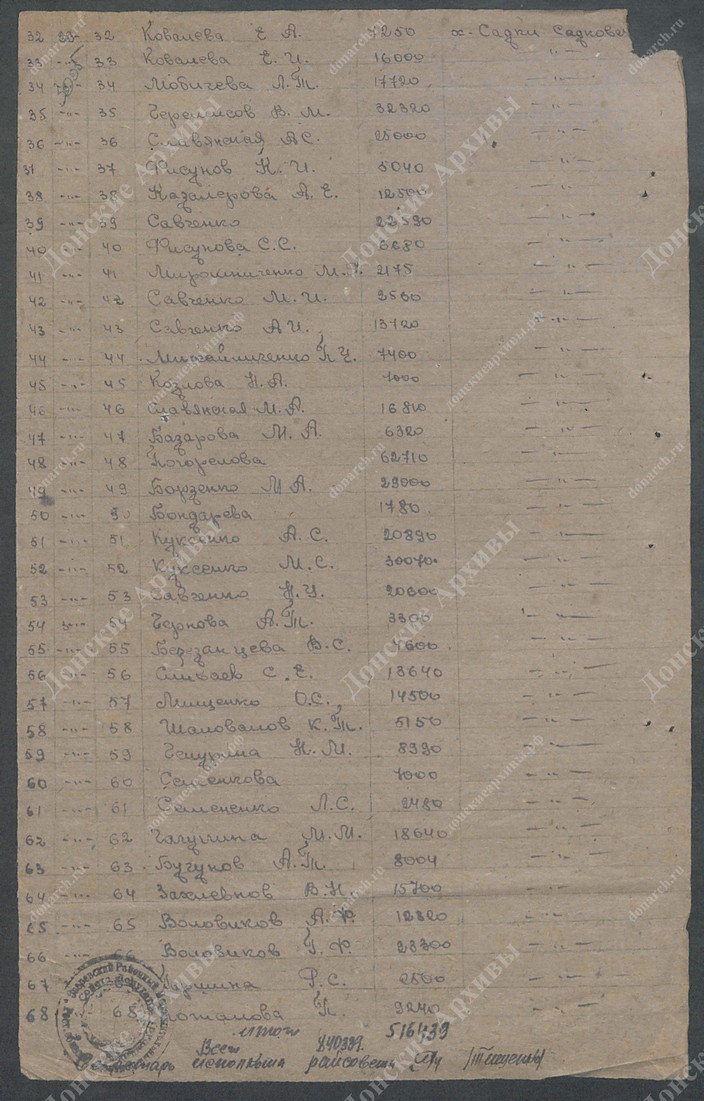 32 32 Ковалева Е А. 7250 х. Садки Садковск
33 -"- 33 Ковалева Е. И. 16000 -"-
34 -"- 34 Мобичева А. Т. 17720 -"-
35 -"- 35 В. М. 32320 -"-
36 -"- 36 Славянская А С. 25000 -"-
37 -"- 37 Фисунов К. И. 5040 -"-
38 -"- 38 А. Е. 12500 -"-
39 -"- 39 Савченко 22590 -"-
40 -"- 40 Фисунова С. С. 6680 -"-
41 -"- 41 Мирошниченко М. 2175 -"-
42 -"- 42 Савченко М. И. 3500 -"-
43 -"- 43 Савченко А И. 13720 -"-
44 -"- 44 7400 -"-
45 -"- 45 Козлова Н. А. 7000 -"-
46 -"- 46 Славянская М. А. 16800 -"-
47 -"- 47 Базарова М. А. 6320 -"-
48 -"- 48 Погорелова 62710 -"-
49 -"- 49 Борзенко М А. 29000 -"-
50 -"- 50 Бондарева 1780 -"-
51 -"- 51 Куксенко А. С. 20890 -"-
52 -"- 52 Куксенко М. С. 30070 -"-
53 -"- 53 Савченко 20600 -"-
54 -"- 54 Чернова А. Т. 3300 -"-
55 -"- 55 Березанцева В. С. 4600 -"-
56 -"- 56 С. Е. 13640 -"-
57 -"- 57 Мищенко О. С. 14500 -"-
58 -"- 58 Шаповалов К. Т. 5150 -"-
59 -"- 59 Н. М. 8990 -"-
60 -"- 60 Семенкова 7000 -"-
61 -"- 61 Семененко Л. С. 2480 -"-
62 -"- 62 М. М. 18640 -"-
63 -"- 63 Бугунов А. Т. 8004 -"-
64 -"- 64 Захлевнов В. Н. 15700 -"-
65 -"- 65 Воловиков А. Ф. 12820 -"-
66 -"- 66 Воловиков Г. Ф. 23300 -"-
67 Р. С. 2500 -"-
68 68 П. 9240 -"-
итого 516439
Всего 840339.
Секретарь исполкома райсовета
Донские Архивы
donarch.ru
донскиеархивы.рф